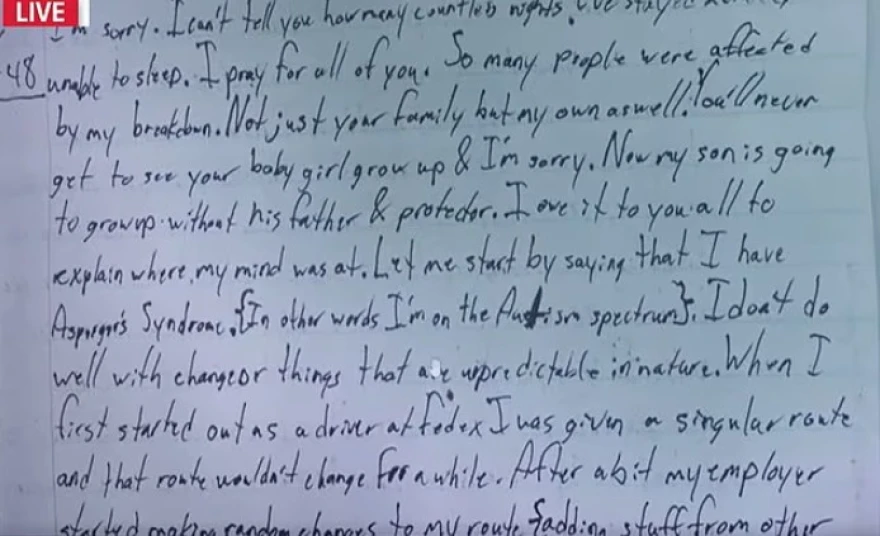 LIVE
I'm sorry. I can't tell you how many countless nights I've stayed
48 unable to sleep. I pray for all of you. So many people were affected
by my breakdown. Not just your family but my own as well. You'll never
get to see your baby girl grow up & I'm sorry. Now my son is going
to grow up without his father & protector. I owe it to you all to
explain where my mind was at. Let me start by saying that I have
Asperger's Syndrome. {In other words I'm on the Autism spectrum}. I don't do
well with change or things that are unpredictable in nature. When I
first started out as a driver at Fedex I was given a singular route
and that route wouldn't change for a while. After a bit my employer
started making random changes to my route {adding stuff from other